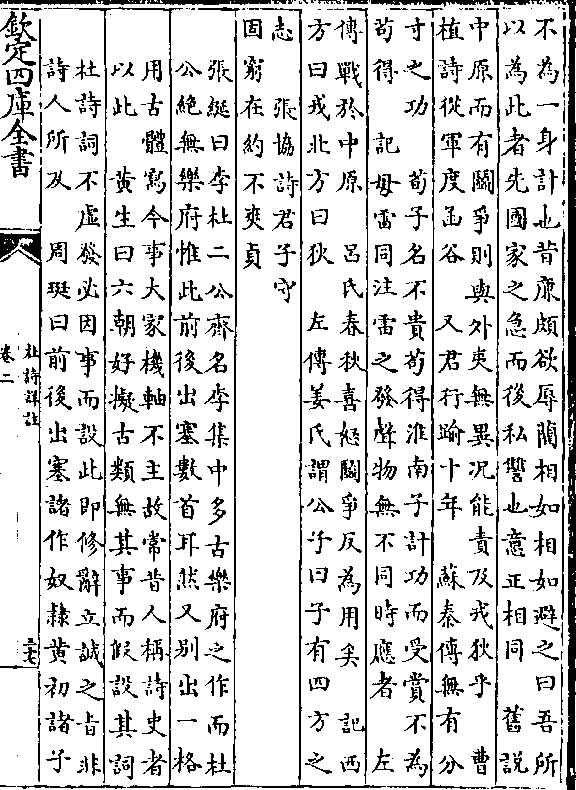 不為一身計也昔廉頗欲辱藺相如相如避之曰吾所
以為此者先國家之急而後私讐也意正相同　舊説
中原而有鬬爭則與外夷無異況能責及戎狄乎　曹
植詩從軍度函谷　又君行踰十年　蘇秦傳無有分
寸之功　荀子名不貴苟得淮南子計功而受賞不為
苟得　記毋雷同注雷之發聲物無不同時應者　左
傳戰於中原　呂氏春秋喜經鬬爭反為用矣　記西
方曰戎北方曰狄　左傳姜氏謂公子曰子有四方之
志　張協詩君子守
固窮在約不爽貞
張綖曰李杜二公齊名李集中多古樂府之作而杜
公絶無樂府惟此前後出塞數首耳然又别出一格
用古體寫今事大家機軸不主故常昔人稱詩史者
以此　黄生曰六朝好擬古類無其事而假設其詞
杜詩詞不虚發必因事而設此即修辭立誠之旨非
詩人所及　周珽曰前後出塞諸作奴隸黄初諸子
欽定四庫全書
杜詩詳註
卷二
三七